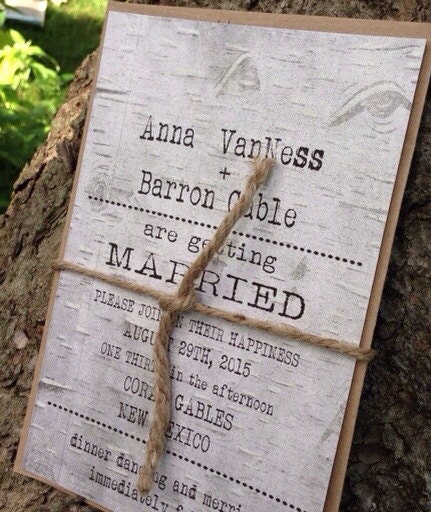 Anna VanNess
+
Barron
are getting
MARRIED
PLEASE JOIN IN THEIR HAPPINESS
AUGUST 29TH, 2015
ONE THIRTY in the afternoon
CORAL GABLES
NEW MEXICO
dinner dancing and
immediately